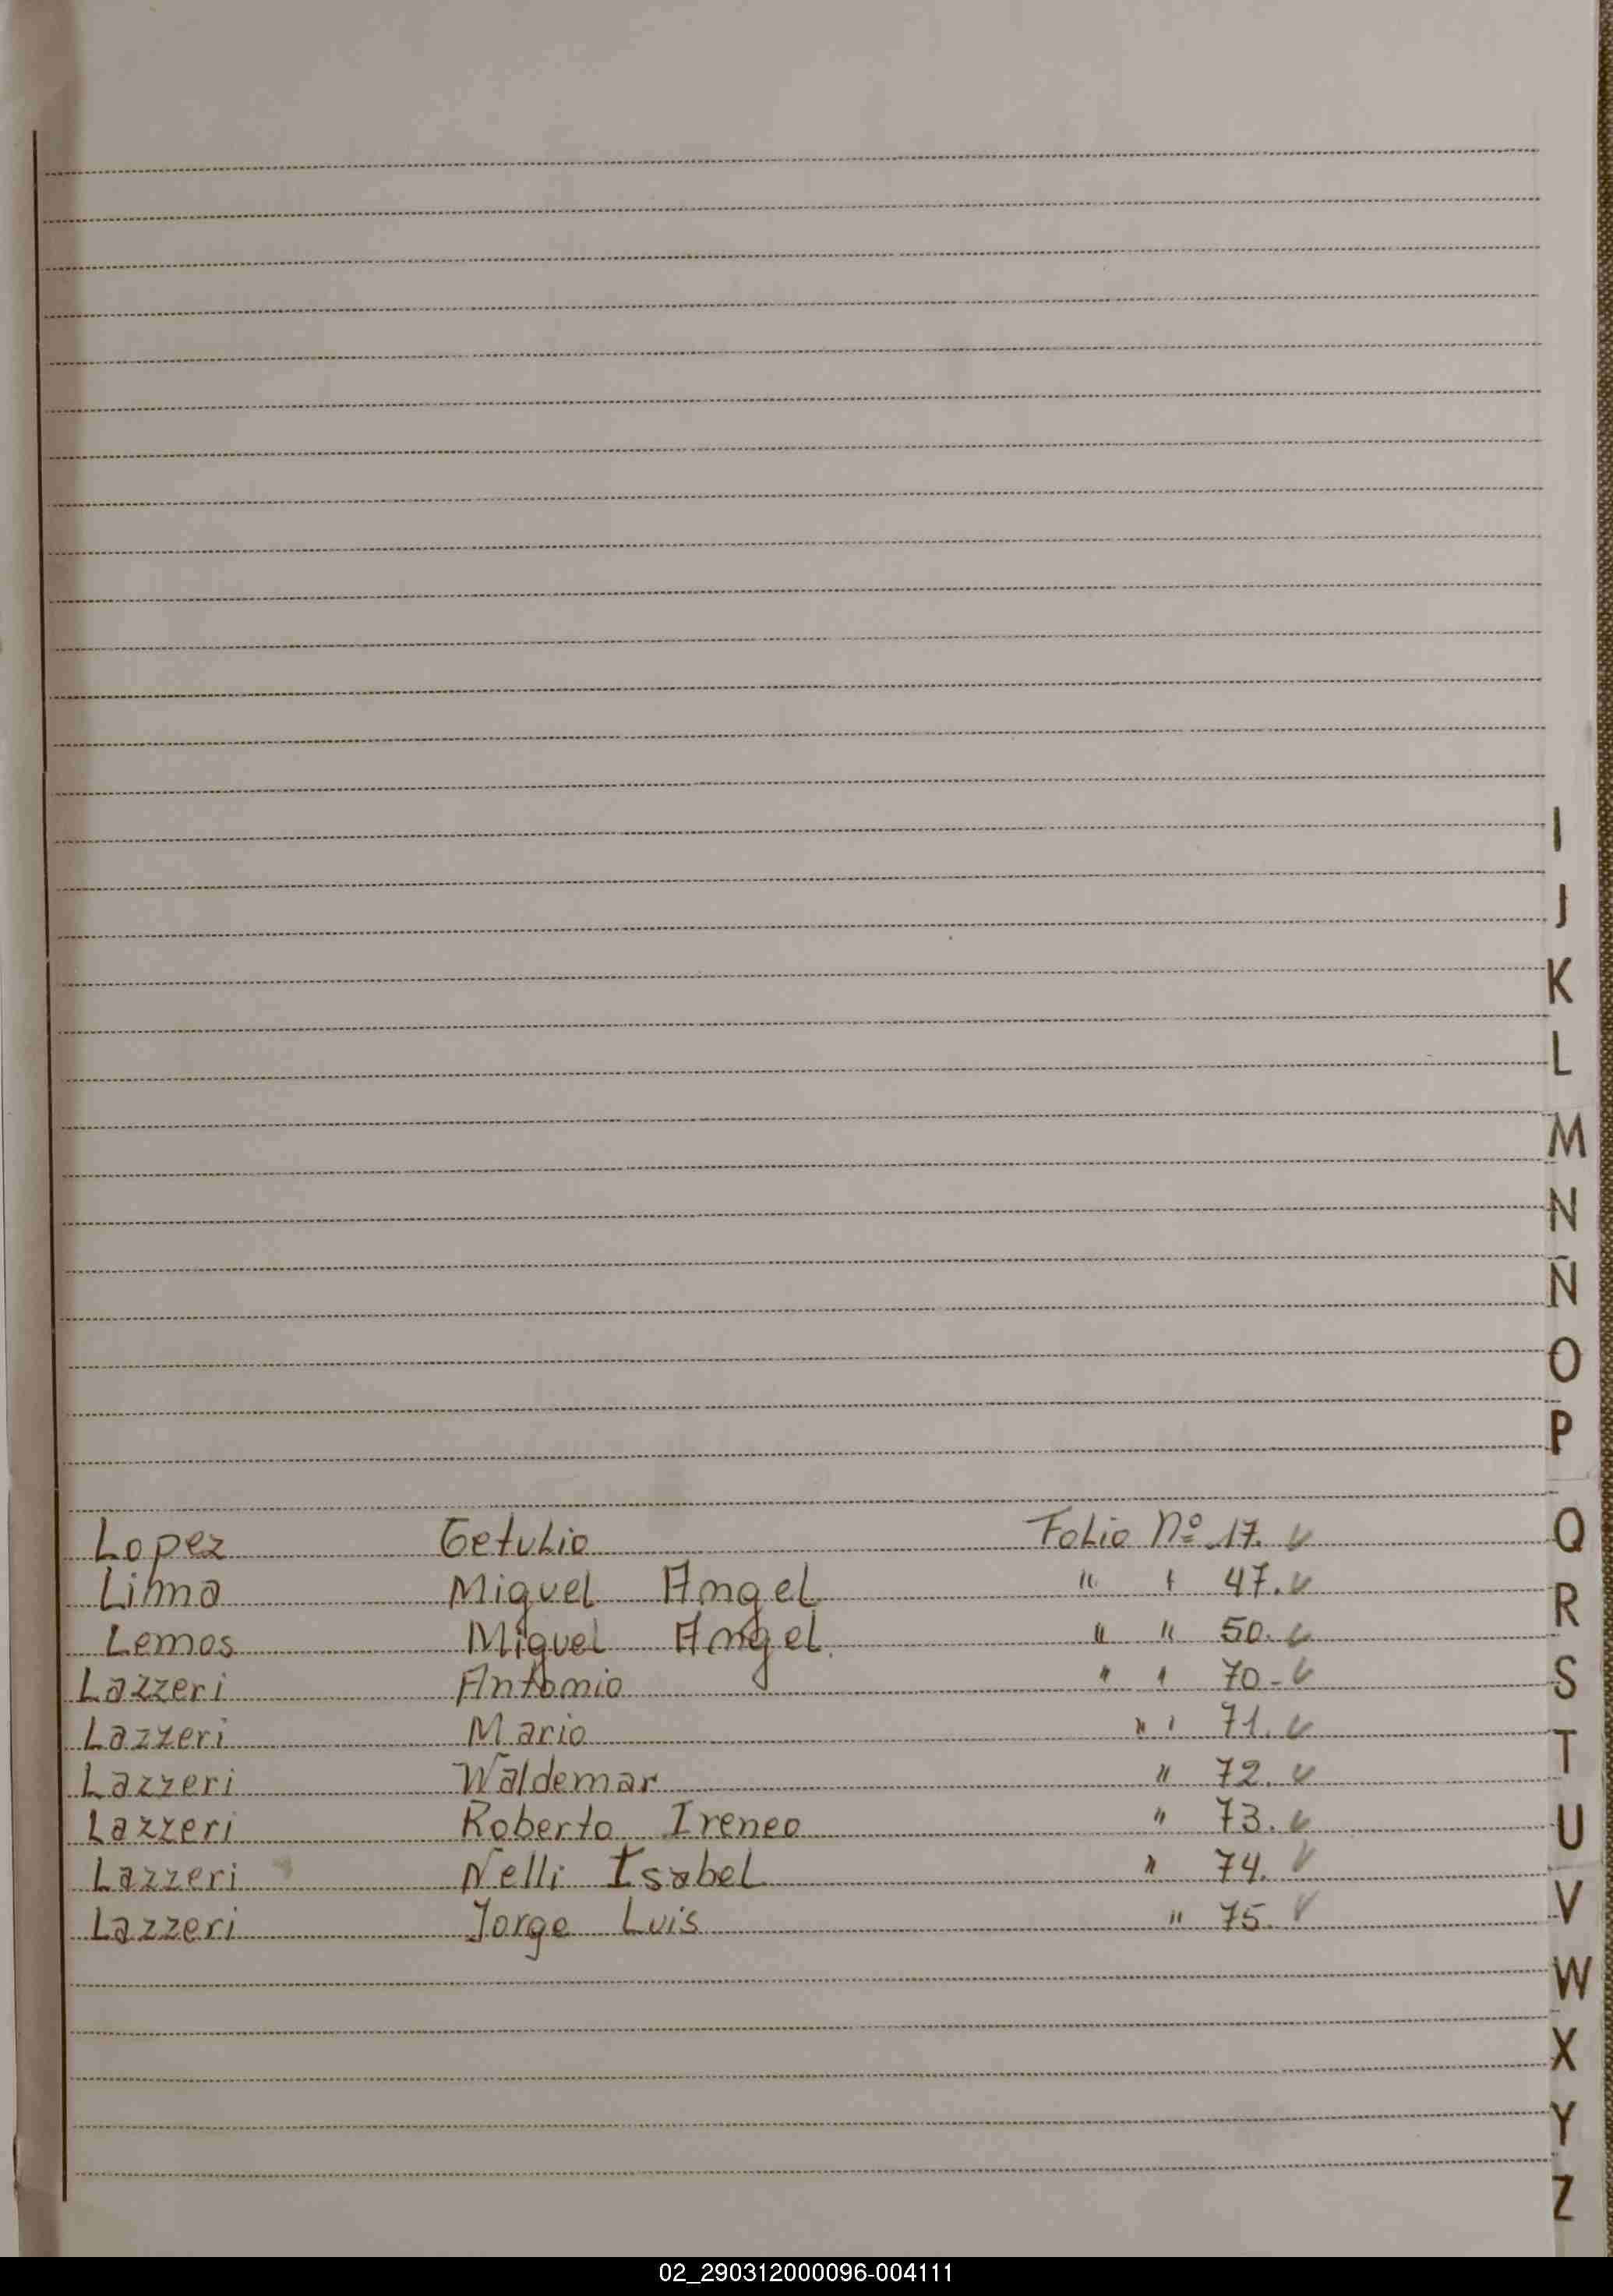 I
J
K
L
M
N
Ñ
O
P
Q
R
S
T
U
V
W
X
Y
Z
Lopez Getulio Folio Nº 17.
Lima Miguel Angel " " 47.
Lemos Miguel Angel. " " 50.
Lazzeri Antonio " " 70-
Lazzeri Mario " " 71.
Lazzeri Waldemar " 72.
Lazzeri Roberto Ireneo " 73.
Lazzeri Nelli Isabel " 74.
Lazzeri Jorge Luis " 75.
02_290312000096-004111